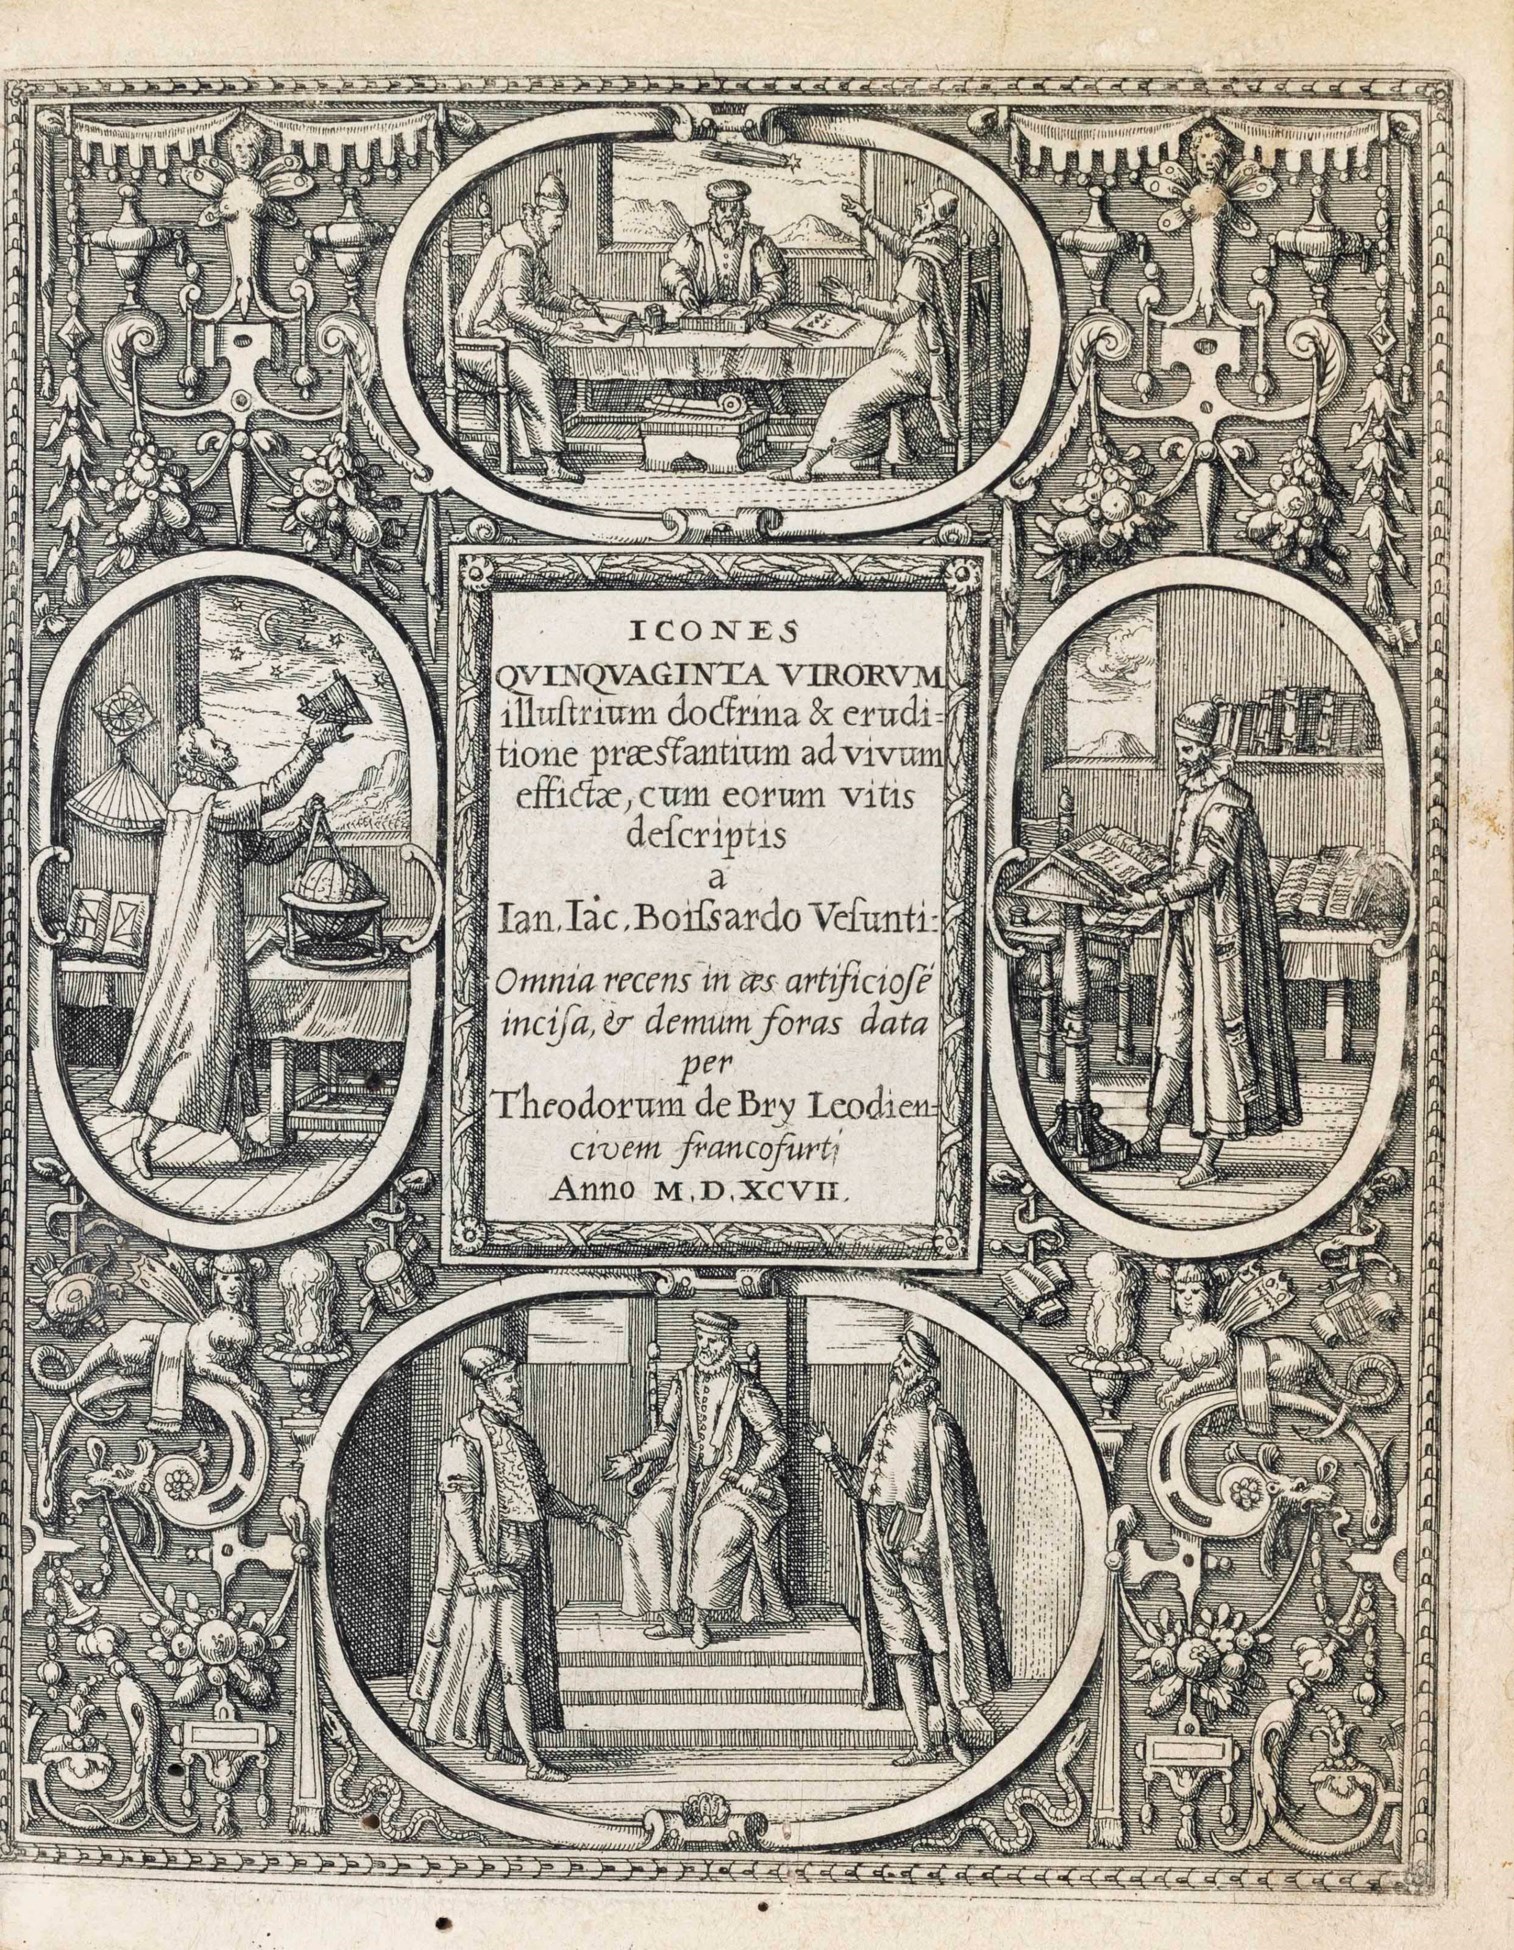 ICONES
QVINQVAGINTA VIRORVM
illuſtrium doctrina & erudi=
tione præstantium ad vivum
effictæ, cum eorum vitis
deſcriptis
a
Ian. Iac. Boiſsardo Veſunti:
Omnia recens in æs artificioſé
inciſa, & demum foras data
per
Theodorum de Bry Leodien=
civem francofurti
Anno M.D.XCVII.